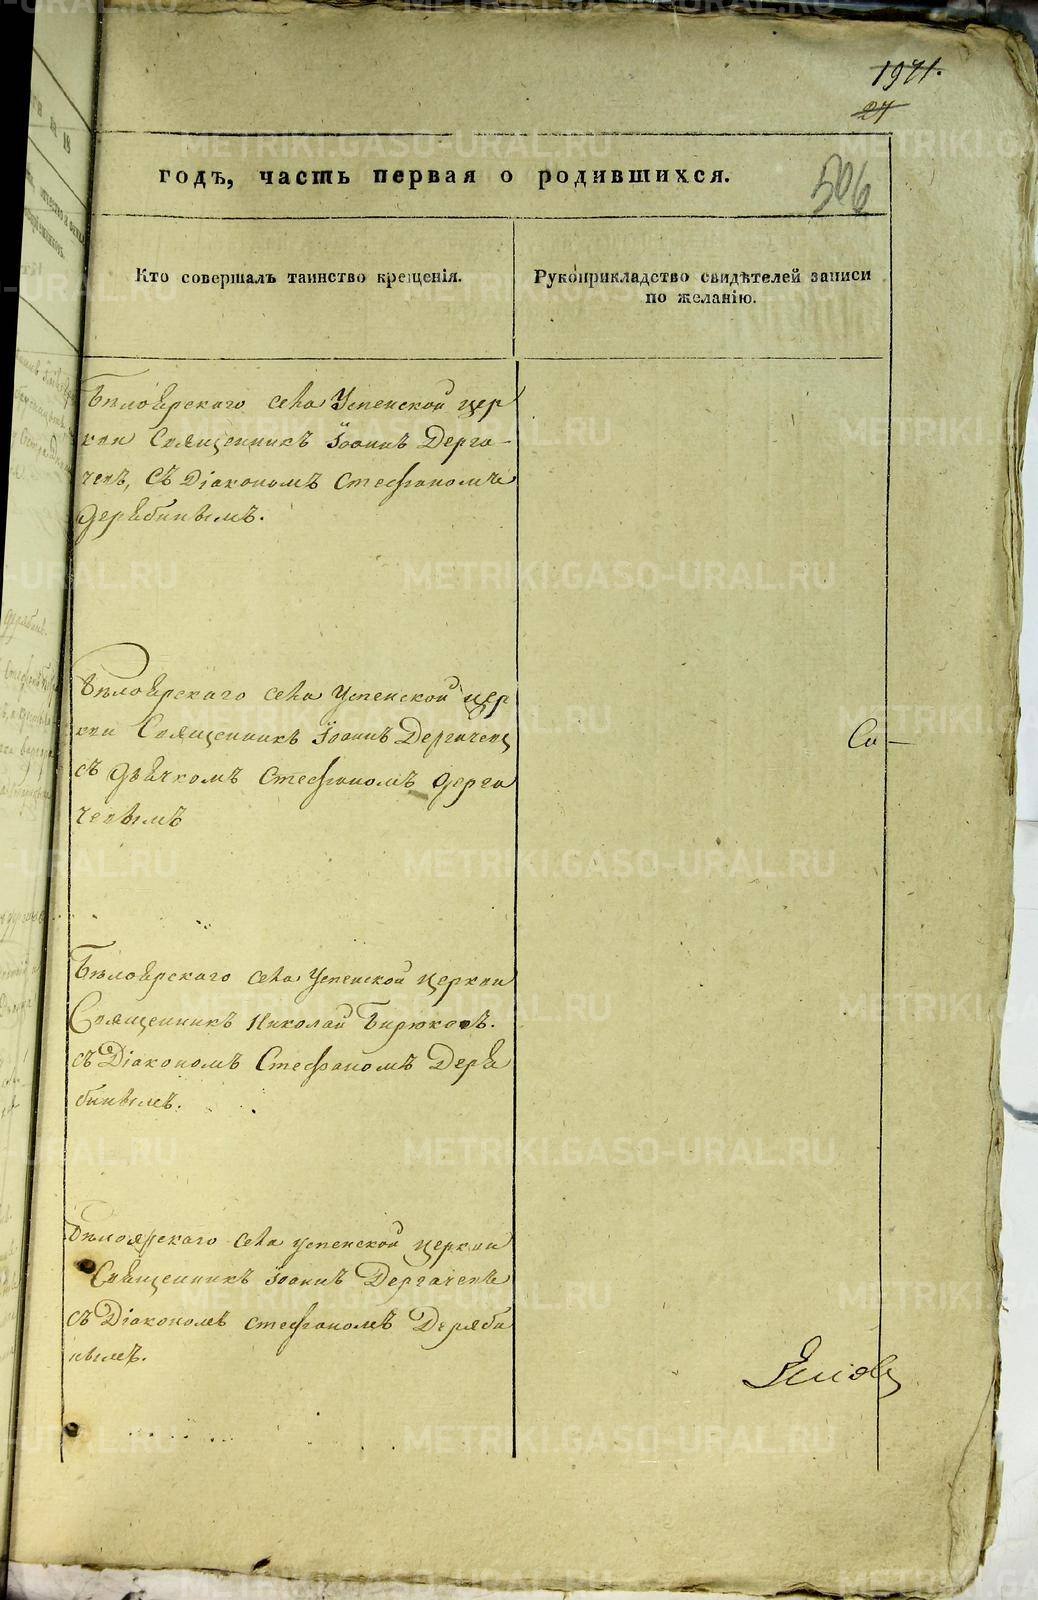 1971.
27
506
годъ, часть первая о родившихся.
Кто совершалъ таинство крещенія.
Рукоприкладство свидѣтелей записи
по желанію.
Бѣлоярскаго села Успенской цер
кви Священникъ Іоаннъ Дерга-
чевъ, съ Діакономъ Стефаномъ
Дерябинымъ.
Бѣлоярскаго села Успенской цер
кви Священникъ Іоаннъ Дергачевъ
съ Дьячкомъ Стефаномъ Дерга
чевымъ
Бѣлоярскаго села Успенской церкви
Священникъ Николай Бирюковъ.
съ Діакономъ Стефаномъ Деря
бинымъ.
Бѣлоярскаго села Успенской церкви
Священникъ Іоаннъ Дергачевъ
съ Діакономъ Стефаномъ Деряби
нымъ.
METRIKI.GASO-URAL.RU